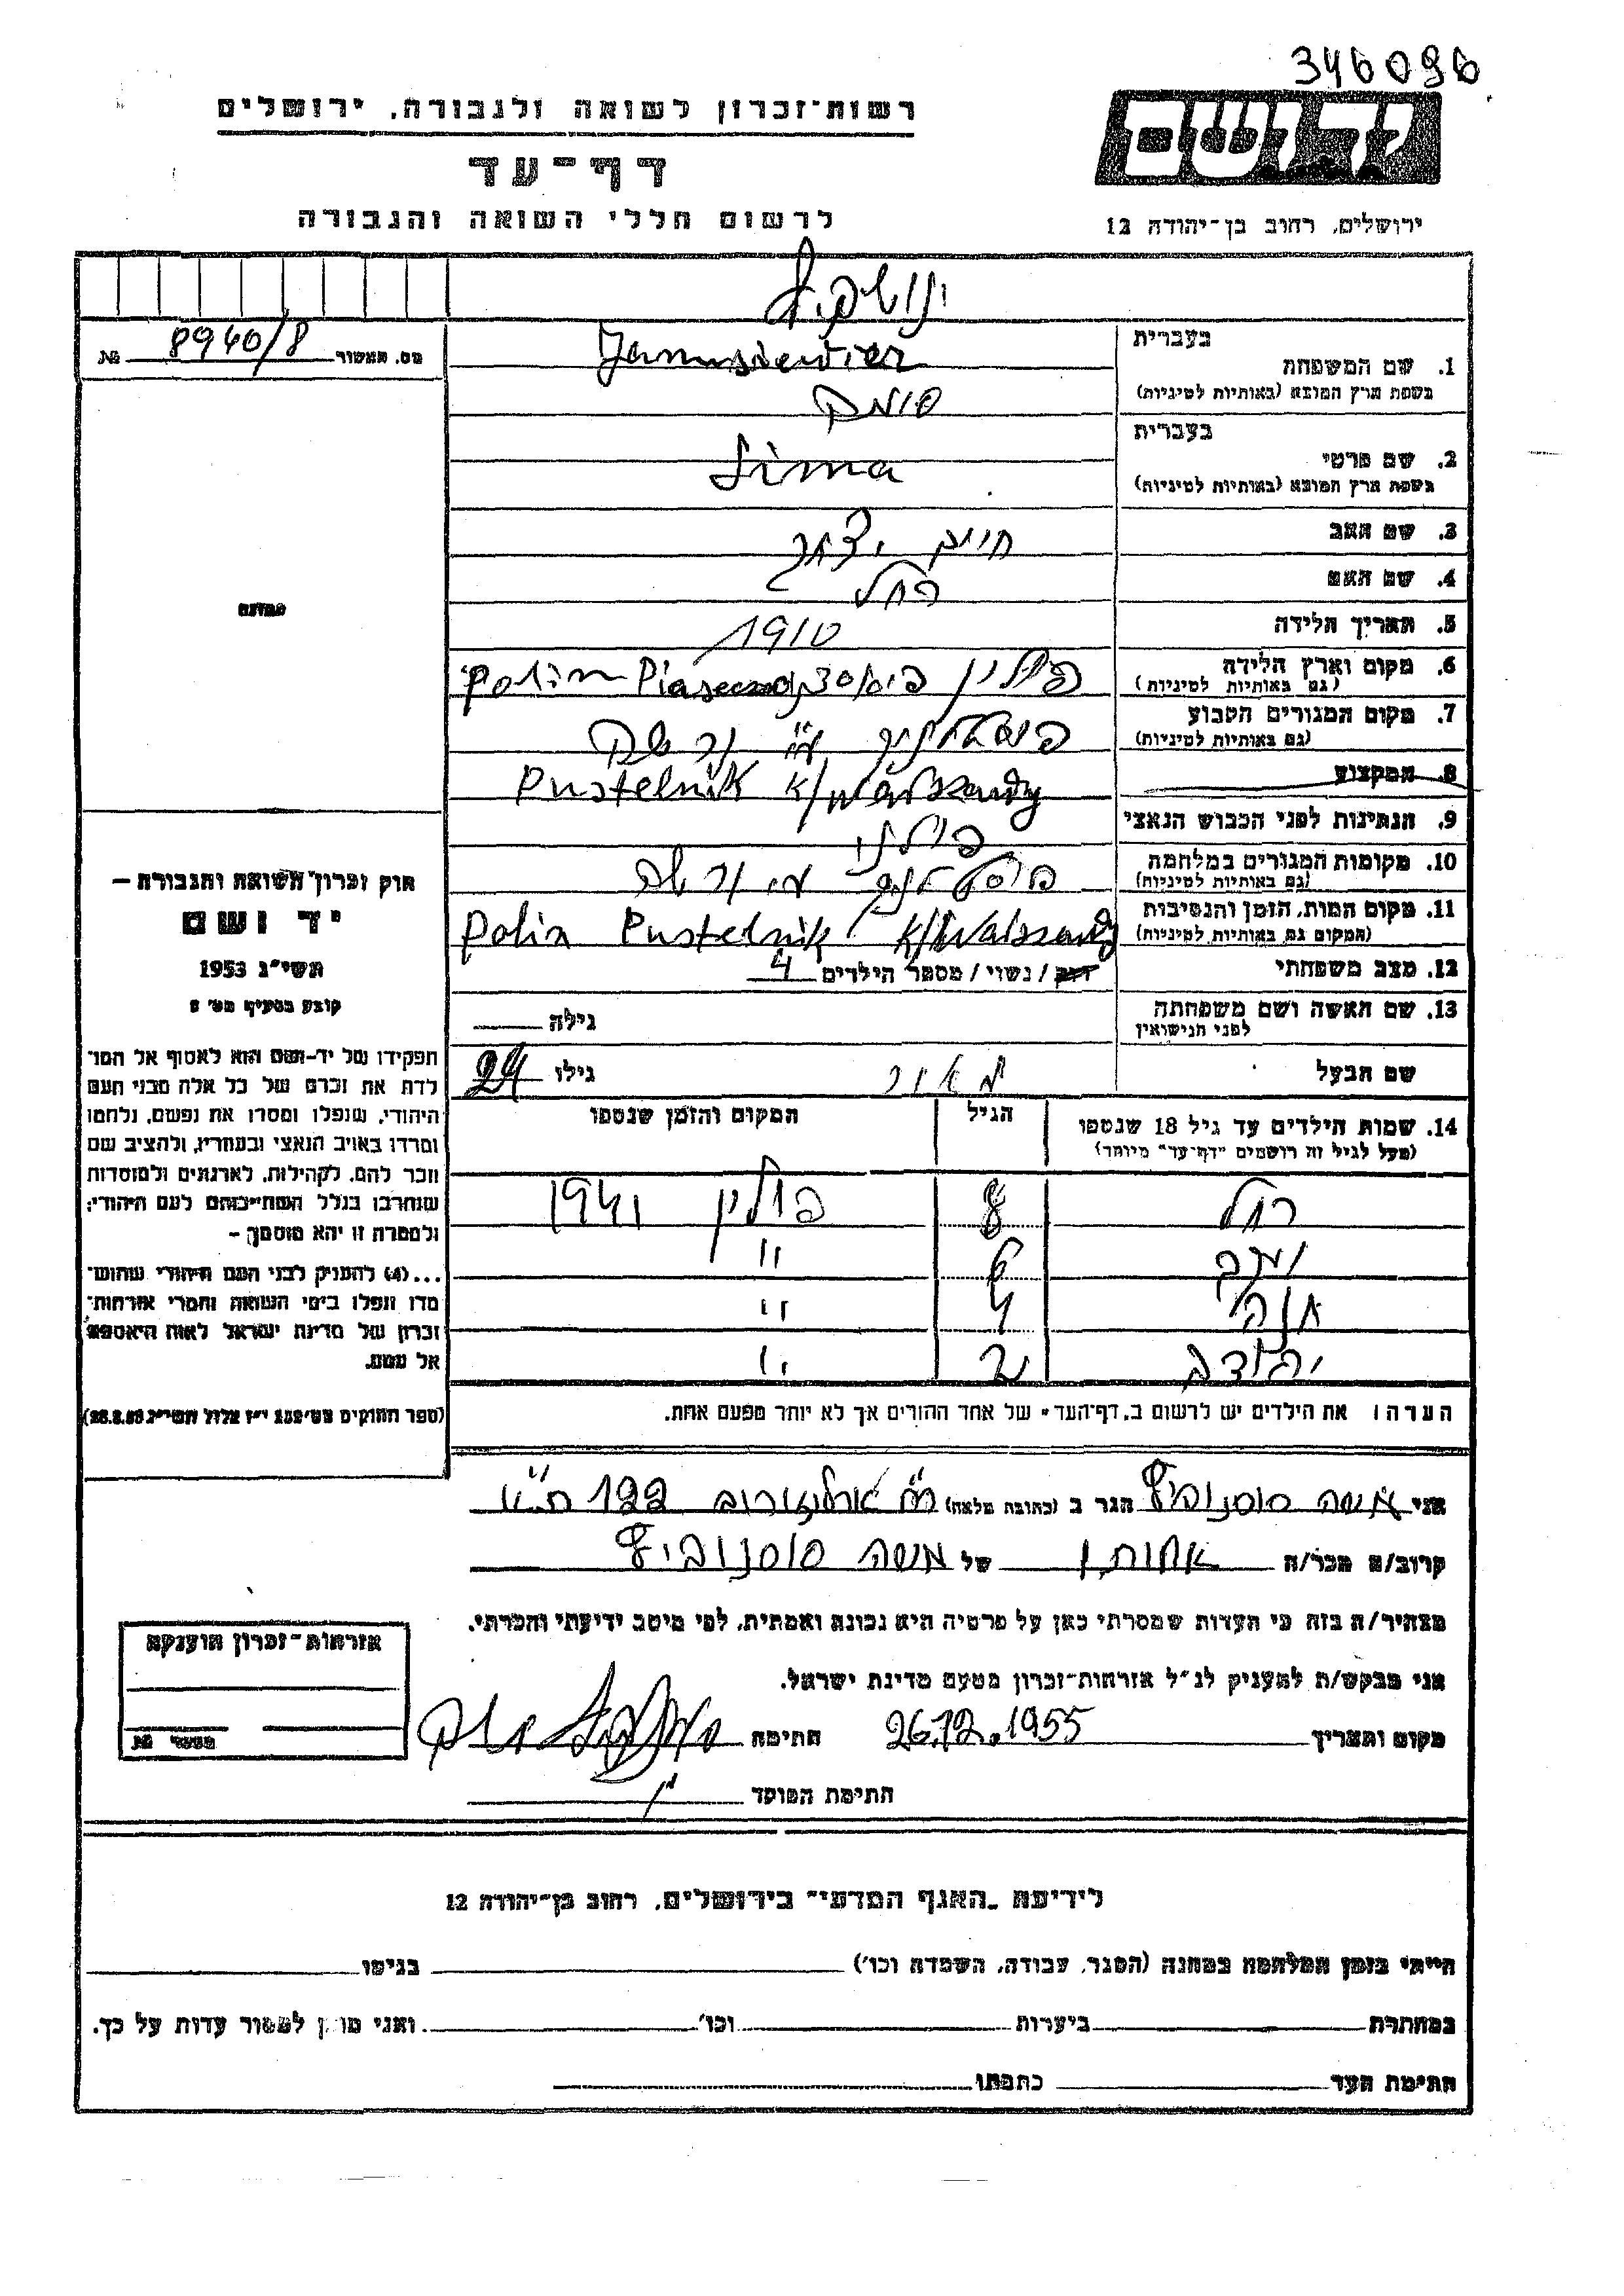 346096
רשות־זכרון לשואה ולגבורה, ירושלים
דף־עד
לרשום חללי השואה והגבורה
ידושם
ירושלים, רחוב בן־יהודה 12
מס. תעשור 8940/8 №
בעברית
1. שם המשפחה
בשפת ארץ המוצא (באותיות לטיניות)
סימה
בעברית
2. שם פרטי Sima
בשפת ארץ המוצא (באותיות לטיניות)
3. שם האב חיים יצחק
4. שם האם רחל
5. תאריך הלידה 1910
6. מקום וארץ הלידה פולין
(גם באותיות לטיניות)
7. מקום המגורים הקבוע
(גם באותיות לטיניות)
Pustelnik k/Warszawy
8. המקצוע
9. הנתינות לפני הכבוש הנאצי פולני
10. מקומות המגורים במלחמה
(גם באותיות לטיניות)
11. מקום המות, הזמן והנסיבות Polin Pustelnik k/Warszawy
(המקום גם באותיות לטיניות)
12. מצב משפחתי רווק / נשוי / מספר הילדים 4
13. שם האשה ושם משפחתה גילה
לפני הנישואין
שם הבעל מאיר גילו 29
14. שמות הילדים עד גיל 18 שנספו הגיל המקום והזמן שנספו
(מעל לגיל זה רושמים "דף־עד" מיוחד)
רחל 8 פולין 1941
6 "
חנה 4 "
יהודה 2 "
הערה: את הילדים יש לרשום ב"דף־העד" של אחד ההורים אך לא יותר מפעם אחת.
תמונה
חוק זכרון השואה והגבורה —
יד ושם
תשי"ג 1953
קובע בסעיף מס' 2
תפקידו של יד־ושם הוא לאסוף אל המו־
לדת את זכרם של כל אלה מבני העם
היהודי, שנפלו ומסרו את נפשם, נלחמו
ומרדו באויב הנאצי ובעוזריו, ולהציב שם
וזכר להם, לקהילות, לארגונים ולמוסדות
שנחרבו בגלל השתייכותם לעם היהודי;
ולמטרה זו יהא מוסמך —
...(4) להעניק לבני העם היהודי שהוש־
מדו ונפלו בימי השואה והמרי אזרחות־
זכרון של מדינת ישראל לאות היאספם
אל עמם.
(ספר החוקים מס' 132 י"ז אלול תשי"ג 28.8.53)
אני הגר ב (כתובת מלאה) 122 ת"א
קרוב/ה מכר/ה של משה סוסנוביץ
מצהיר/ה בזה כי העדות שמסרתי כאן על פרטיה היא נכונה ואמתית, לפי מיטב ידיעתי והכרתי.
אני מבקש/ת להעניק לנ"ל אזרחות־זכרון מטעם מדינת ישראל.
מקום ותאריך 26.12.1955 חתימה
חתימת הפוקד
אזרחות־זכרון הוענקה
מספר №
לידיעת "האגף המדעי" בירושלים, רחוב בן־יהודה 12
הייתי בזמן המלחמה במחנה (הסגר, עבודה, השמדה וכו') בגיטו
במחתרת ביערות וכו' ואני מוכן למסור עדות על כך.
חתימת העד כתבתו